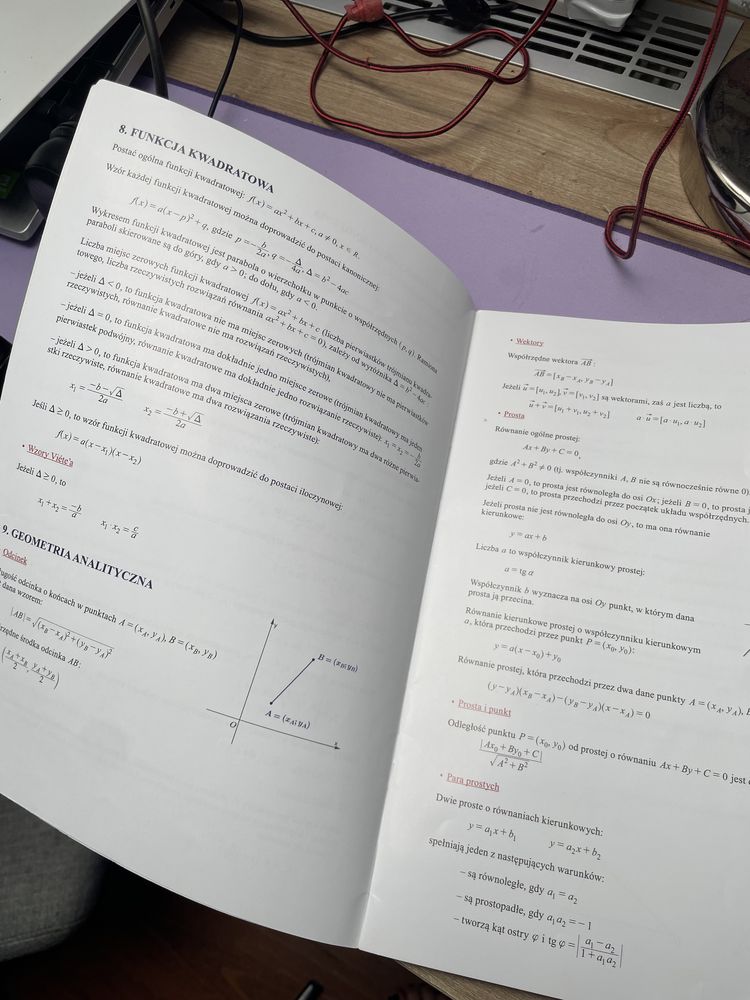 8. FUNKCJA KWADRATOWA
Postać ogólna funkcji kwadratowej: f(x) = ax² + bx + c, a ≠ 0, x ∈ R.
Wzór każdej funkcji kwadratowej można doprowadzić do postaci kanonicznej:
f(x) = a(x − p)² + q, gdzie p = −b/2a, q = −Δ/4a, Δ = b² − 4ac
Wykresem funkcji kwadratowej jest parabola o wierzchołku w punkcie o współrzędnych (p, q). Ramiona
paraboli skierowane są do góry, gdy a > 0; do dołu, gdy a < 0.
Liczba miejsc zerowych funkcji kwadratowej f(x) = ax² + bx + c (liczba pierwiastków trójmianu kwadra-
towego, liczba rzeczywistych rozwiązań równania ax² + bx + c = 0), zależy od wyróżnika Δ = b² − 4ac:
– jeżeli Δ < 0, to funkcja kwadratowa nie ma miejsc zerowych (trójmian kwadratowy nie ma pierwiastków
rzeczywistych, równanie kwadratowe nie ma rozwiązań rzeczywistych),
– jeżeli Δ = 0, to funkcja kwadratowa ma dokładnie jedno miejsce zerowe (trójmian kwadratowy ma jeden
pierwiastek podwójny, równanie kwadratowe ma dokładnie jedno rozwiązanie rzeczywiste): x₁ = x₂ = −b/2a
– jeżeli Δ > 0, to funkcja kwadratowa ma dwa miejsca zerowe (trójmian kwadratowy ma dwa różne pierwia-
stki rzeczywiste, równanie kwadratowe ma dwa rozwiązania rzeczywiste):
x₁ = (−b − √Δ)/2a x₂ = (−b + √Δ)/2a
Jeśli Δ ≥ 0, to wzór funkcji kwadratowej można doprowadzić do postaci iloczynowej:
f(x) = a(x − x₁)(x − x₂)
• Wzory Viéte'a
Jeżeli Δ ≥ 0, to
x₁ + x₂ = −b/a x₁ · x₂ = c/a
9. GEOMETRIA ANALITYCZNA
Odcinek
odcinka o końcach w punktach A = (x_A, y_A), B = (x_B, y_B)
dana wzorem:
|AB| = √((x_B − x_A)² + (y_B − y_A)²)
środka odcinka AB:
((x_A + x_B)/2, (y_A + y_B)/2)
y
B = (x_B; y_B)
A = (x_A; y_A)
O
x
• Wektory
Współrzędne wektora AB⃗:
AB⃗ = [x_B − x_A, y_B − y_A]
Jeżeli u⃗ = [u₁, u₂], v⃗ = [v₁, v₂] są wektorami, zaś a jest liczbą, to
u⃗ + v⃗ = [u₁ + v₁, u₂ + v₂] a · u⃗ = [a · u₁, a · u₂]
• Prosta
Równanie ogólne prostej:
Ax + By + C = 0,
gdzie A² + B² ≠ 0 (tj. współczynniki A, B nie są równocześnie równe 0)
Jeżeli A = 0, to prosta jest równoległa do osi Ox; jeżeli B = 0, to prosta
jeżeli C = 0, to prosta przechodzi przez początek układu współrzędnych.
Jeżeli prosta nie jest równoległa do osi Oy, to ma ona równanie
kierunkowe:
y = ax + b
Liczba a to współczynnik kierunkowy prostej:
a = tg α
Współczynnik b wyznacza na osi Oy punkt, w którym dana
prosta ją przecina.
Równanie kierunkowe prostej o współczynniku kierunkowym
a, która przechodzi przez punkt P = (x₀, y₀):
y = a(x − x₀) + y₀
Równanie prostej, która przechodzi przez dwa dane punkty A = (x_A, y_A),
(y − y_A)(x_B − x_A) − (y_B − y_A)(x − x_A) = 0
• Prosta i punkt
Odległość punktu P = (x₀, y₀) od prostej o równaniu Ax + By + C = 0 jest
|Ax₀ + By₀ + C|/√(A² + B²)
• Para prostych
Dwie proste o równaniach kierunkowych:
y = a₁x + b₁ y = a₂x + b₂
spełniają jeden z następujących warunków:
– są równoległe, gdy a₁ = a₂
– są prostopadłe, gdy a₁a₂ = −1
– tworzą kąt ostry φ i tg φ = |(a₁ − a₂)/(1 + a₁a₂)|